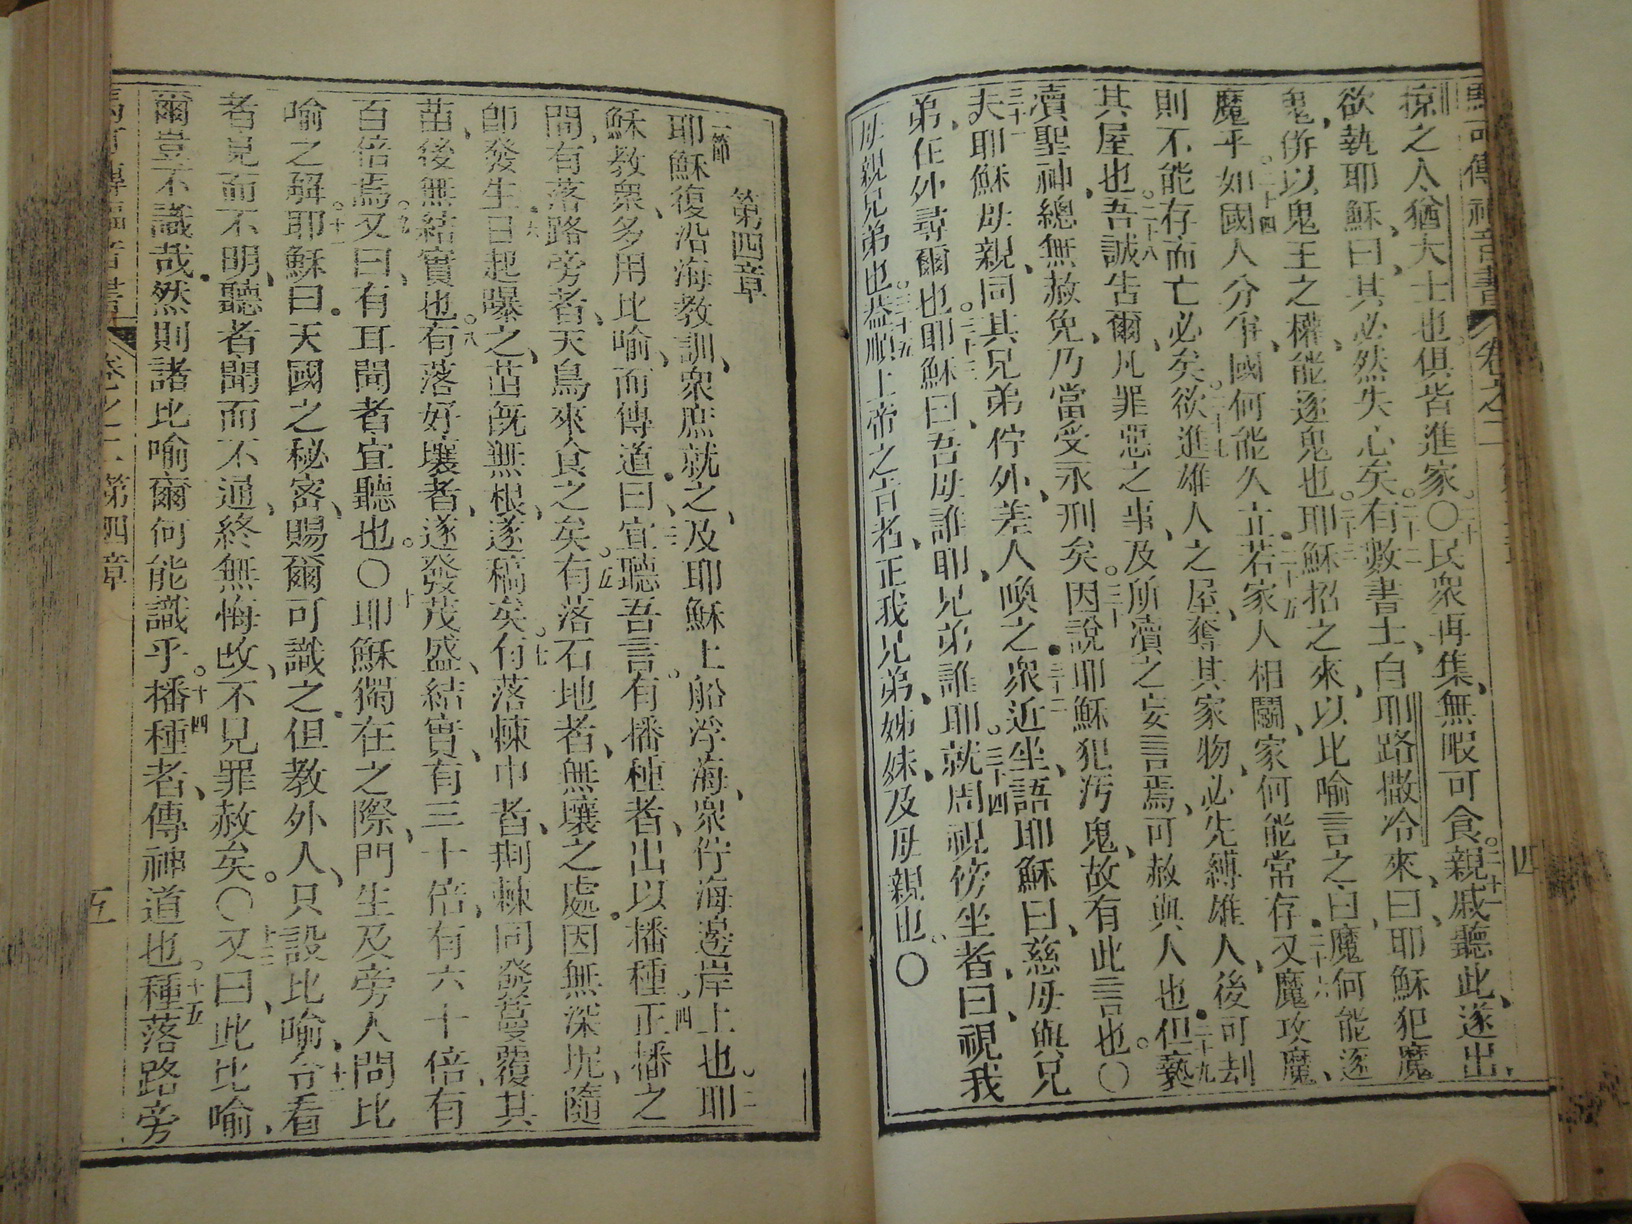 馬可傳福音書 卷之二
掠之人猶大士也俱皆進家。二十〇民眾再集、無暇可食。二十一親戚聽此、遂出
欲執耶穌、曰、其必然失心矣。二十二有數書士、自耶路撒冷來、曰、耶穌犯魔
鬼、併以鬼王之權、能逐鬼也。二十三耶穌招之來、以比喻言之、曰魔何能逐
魔乎。二十四如國人分爭、國何能久立。二十五若家人相鬬、家何能常存。二十六又魔攻魔、
則不能存而亡必矣。二十七欲進雄人之屋、奪其家物、必先縛雄人、後可刦
其屋也。二十八吾誠吿爾、凡罪惡之事、及所瀆之妄言焉、可赦與人也。二十九但褻
瀆聖神、總無赦免、乃當受永刑矣。三十因說耶穌犯汚鬼、故有此言也。〇
三十一夫耶穌母親、同其兄弟佇外、差人喚之。三十二眾近坐、語耶穌曰、慈母與兄
弟、在外尋爾也。三十三耶穌曰、吾母誰耶、兄弟誰耶。三十四就周視傍坐者、曰、視我
母親兄弟也。三十五蓋順上帝之旨者、正我兄弟、姊妹、及母親也。〇
四
第四章
一節耶穌復沿海教訓、眾庶就之、及耶穌上船浮海、眾佇海邊岸上也。二耶
穌教眾、多用比喻、而傳道、曰、三宜聽吾言。有播種者、出以播種。四正播之
間、有落路旁者、天鳥來食之矣。五有落石地者、無壤之處、因無深坭、隨
卽發生。六日起曝之、苗旣無根、遂稿矣。七有落棘中者、荆棘同發蔓覆其
苗、後無結實也。八有落好壤者、遂發茂盛、結實、有三十倍、有六十倍、有
百倍焉。九又曰、有耳聞者、宜聽也。〇十耶穌獨在之際、門生及旁人問比
喻之解。十一耶穌曰、天國之秘密、賜爾可識之、但教外人、只設比喻、十二令看
者見而不明、聽者聞而不通、終無悔改、不見罪赦矣。〇十三又曰、此比喻、
爾豈不識哉、然則諸比喻、爾何能識乎。十四播種者、傳神道也。十五種落路旁
馬可傳福音書 卷之二 第四章
五